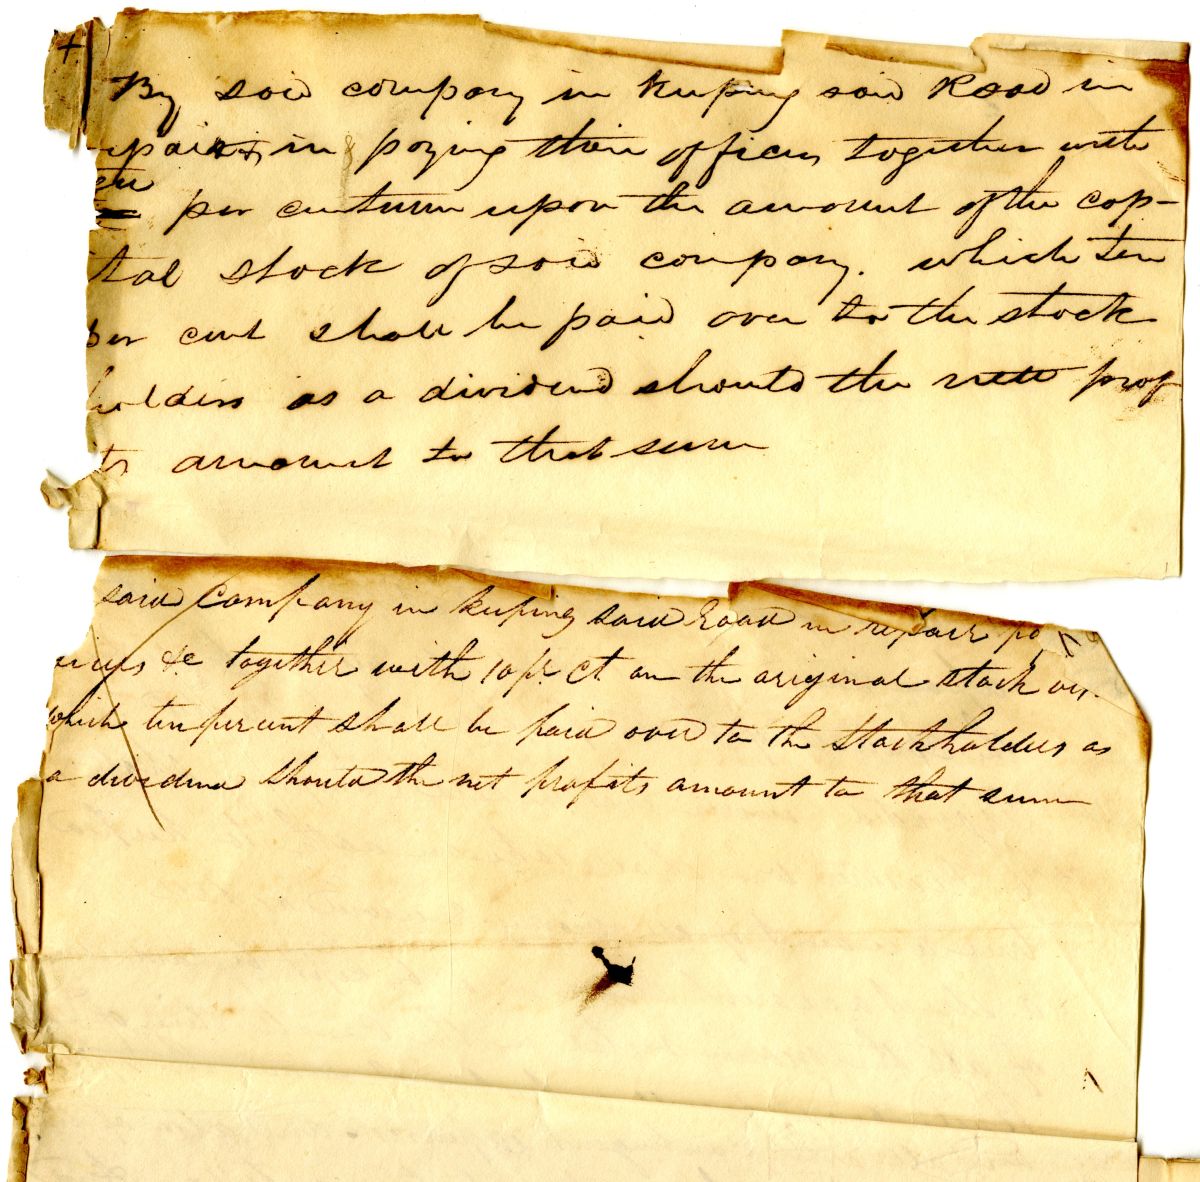 +
By said company in keeping said Road in
repair & in paying their officers together with
ten
per centum upon the amount of the cap-
ital stock of said company. which ten
per cent shall be paid over to the stock
holders as a dividend should the nett prof
its amount to that sum
said Company in keeping said Road in repair pa
&c together with 10 pr. Ct on the original stock
which ten per cent shall be paid over to the Stockholders as
a dividend should the net profits amount to that sum